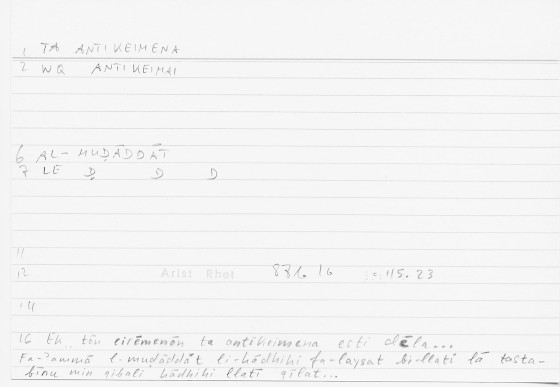 1 TA ANTIKEIMENA
2 WQ ANTIKEIMAI
6 AL-MUḌĀDDĀT
7 LE Ḍ D D
11
12 Arist Rhet 881.16 = 115.23
14
16 Ek tōn eirēmenōn ta antikeimena esti dēla...
Fa-ʾammā l-muḍāddāt li-hādhihi fa-laysat bi-llatī lā tasta-
bīnu min qibali hādhihi llatī qīlat...